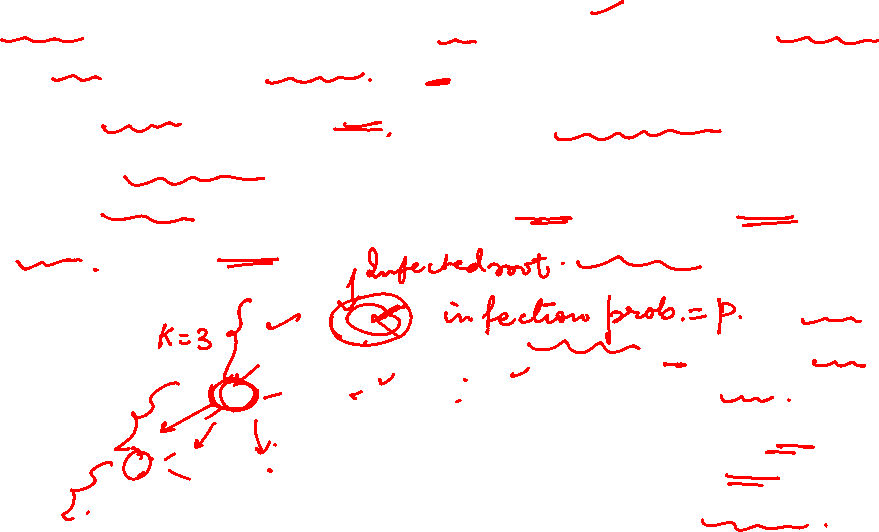 Infected root.
infection prob. = p.
K=3